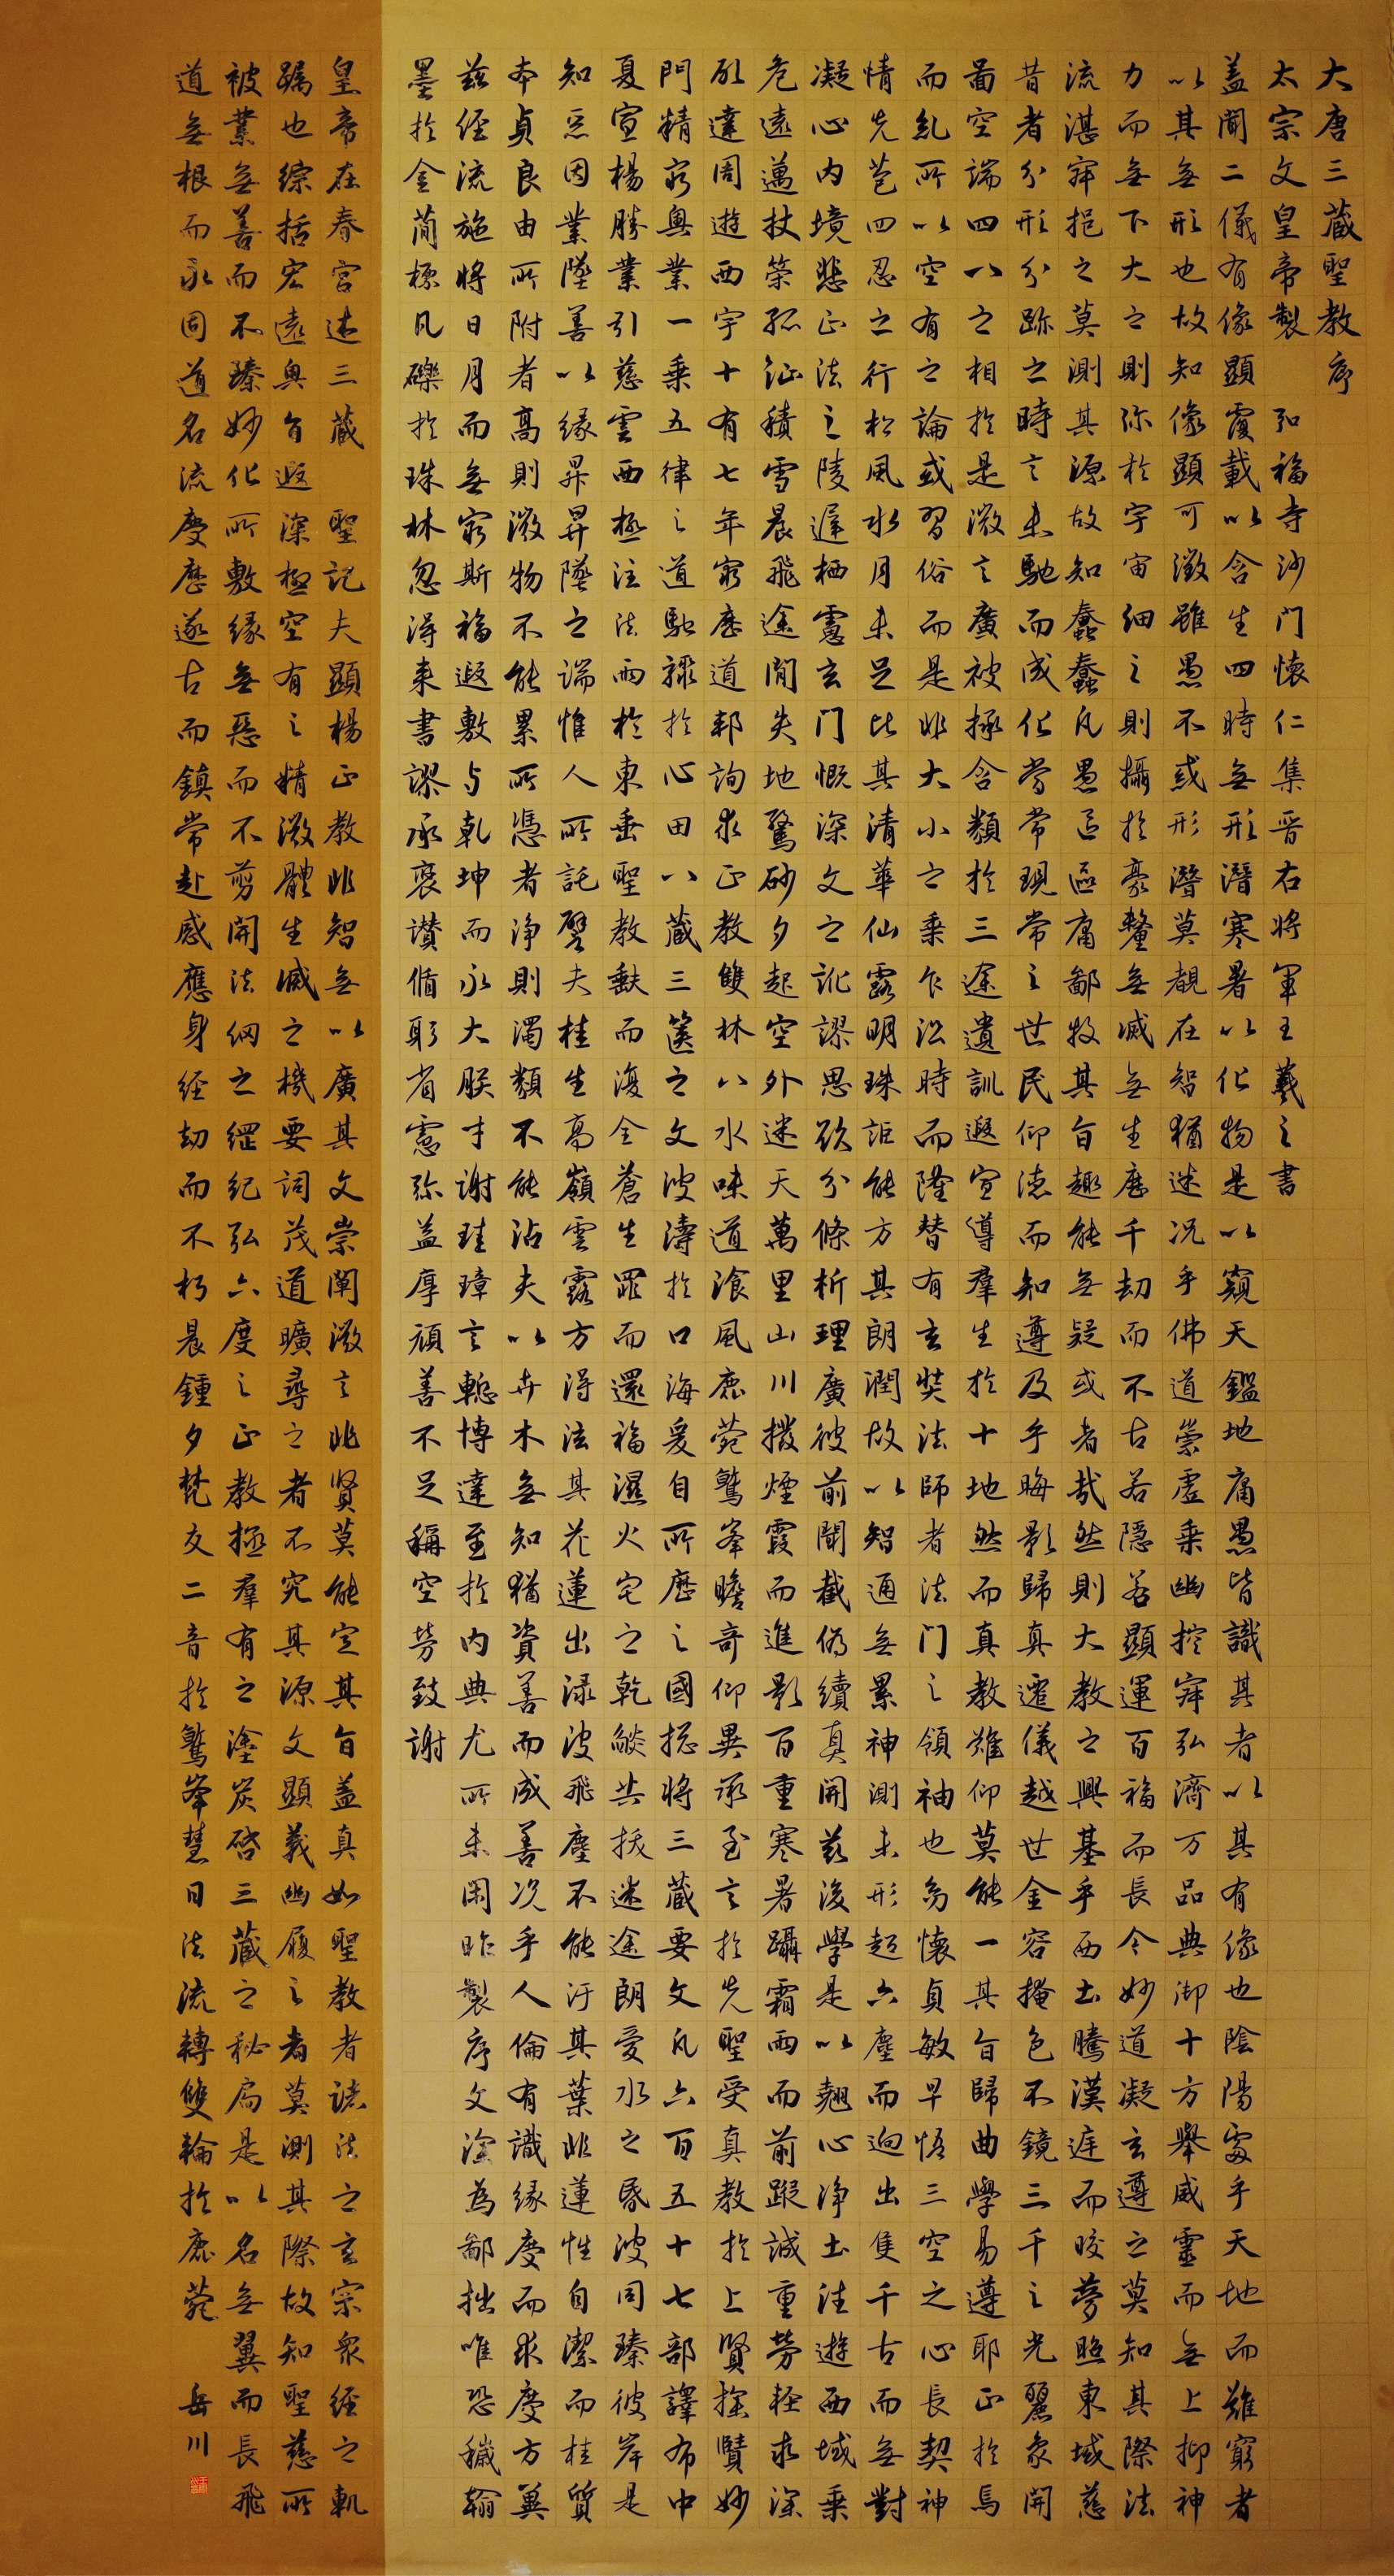 大唐三藏聖教序
太宗文皇帝製 弘福寺沙門懷仁集晉右將軍王羲之書
蓋聞二儀有像顯覆載以含生四時無形潛寒暑以化物是以窺天鑑地庸愚皆識其者以其有像也陰陽處乎天地而難窮者
以其無形也故知像顯可徵雖愚不惑形潛莫覩在智猶迷況乎佛道崇虛乘幽控寂弘濟万品典御十方舉威靈而無上抑神
力而無下大之則彌於宇宙細之則攝於豪釐無滅無生歷千劫而不古若隱若顯運百福而長今妙道凝玄遵之莫知其際法
流湛寂挹之莫測其源故知蠢蠢凡愚區區庸鄙投其旨趣能無疑或者哉然則大教之興基乎西土騰漢庭而皎夢照東域慈
昔者分形分跡之時言未馳而成化當常現常之世民仰德而知遵及乎晦影歸真遷儀越世金容掩色不鏡三千之光麗象開
圖空端四八之相於是微言廣被拯含類於三途遺訓遐宣導羣生於十地然而真教難仰莫能一其旨歸曲學易遵耶正於焉
而糺所以空有之論或習俗而是非大小之乘乍沿時而隆替有玄奘法師者法門之領袖也幼懷貞敏早悟三空之心長契神
情先苞四忍之行松風水月未足比其清華仙露明珠詎能方其朗潤故以智通無累神測未形超六塵而迥出隻千古而無對
凝心內境悲正法之陵遲栖慮玄門慨深文之訛謬思欲分條析理廣彼前聞截偽續真開茲後學是以翹心淨土往遊西域乘
危遠邁杖策孤征積雪晨飛途閒失地驚砂夕起空外迷天萬里山川撥煙霞而進影百重寒暑躡霜雨而前蹤誠重勞輕求深
願達周遊西宇十有七年窮歷道邦詢求正教雙林八水味道飡風鹿菀鷲峯瞻奇仰異承至言於先聖受真教於上賢探賾妙
門精窮奧業一乘五律之道馳驟於心田八藏三篋之文波濤於口海爰自所歷之國揔將三藏要文凡六百五十七部譯布中
夏宣楊勝業引慈雲西極注法雨於東垂聖教缺而復全蒼生罪而還福濕火宅之乾燄共拔迷途朗愛水之昏波同臻彼岸是
知惡因業墜善以緣昇昇墜之端惟人所託譬夫桂生高嶺雲露方得泫其花蓮出淥波飛塵不能汙其葉非蓮性自潔而桂質
本貞良由所附者高則微物不能累所憑者淨則濁類不能沾夫以卉木無知猶資善而成善況乎人倫有識緣慶而求慶方冀
茲經流施將日月而無窮斯福遐敷与乾坤而永大朕才謝珪璋言慙博達至於內典尤所未閑昨製序文深為鄙拙唯恐穢翰
墨於金簡標瓦礫於珠林忽得來書謬承褒讚循躬省慮彌益厚顏善不足稱空勞致謝
皇帝在春宮述三藏 聖記夫顯楊正教非智無以廣其文崇闡微言非賢莫能定其旨蓋真如聖教者諸法之玄宗眾經之軌
躅也綜括宏遠奧旨遐深極空有之精微體生滅之機要詞茂道曠尋之者不究其源文顯義幽履之者莫測其際故知聖慈所
被業無善而不臻妙化所敷緣無惡而不剪開法網之綱紀弘六度之正教拯羣有之塗炭啓三藏之秘扃是以名無翼而長飛
道無根而永固道名流慶歷遂古而鎮常赴感應身經劫而不朽晨鐘夕梵交二音於鷲峯慧日法流轉雙輪於鹿菀 岳川